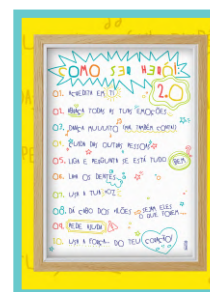 COMO SER HERÓI!
2.0
01. ACREDITA EM TI.
02. ABRAÇA TODAS AS TUAS EMOÇÕES.
03. DANÇA MUUUITO (RIR TAMBÉM CONTA)
04. CUIDA DAS OUTRAS PESSOAS
05. LIGA E PERGUNTA SE ESTÁ TUDO BEM
06. LAVA OS DENTES.
07. USA A TUA VOZ
08. DÁ CABO DOS VILÕES SEJAM ELES
O QUE FOREM...
09. PEDE AJUDA!
10. USA A FORÇA... DO TEU CORAÇÃO!